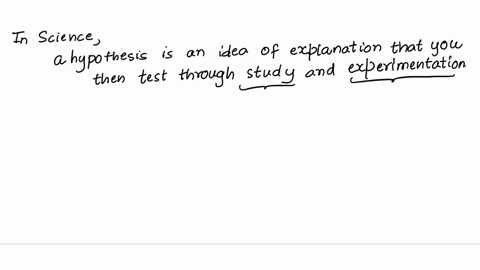 In Science,
a hypothesis is an idea of explanation that you
then test through study and experimentation